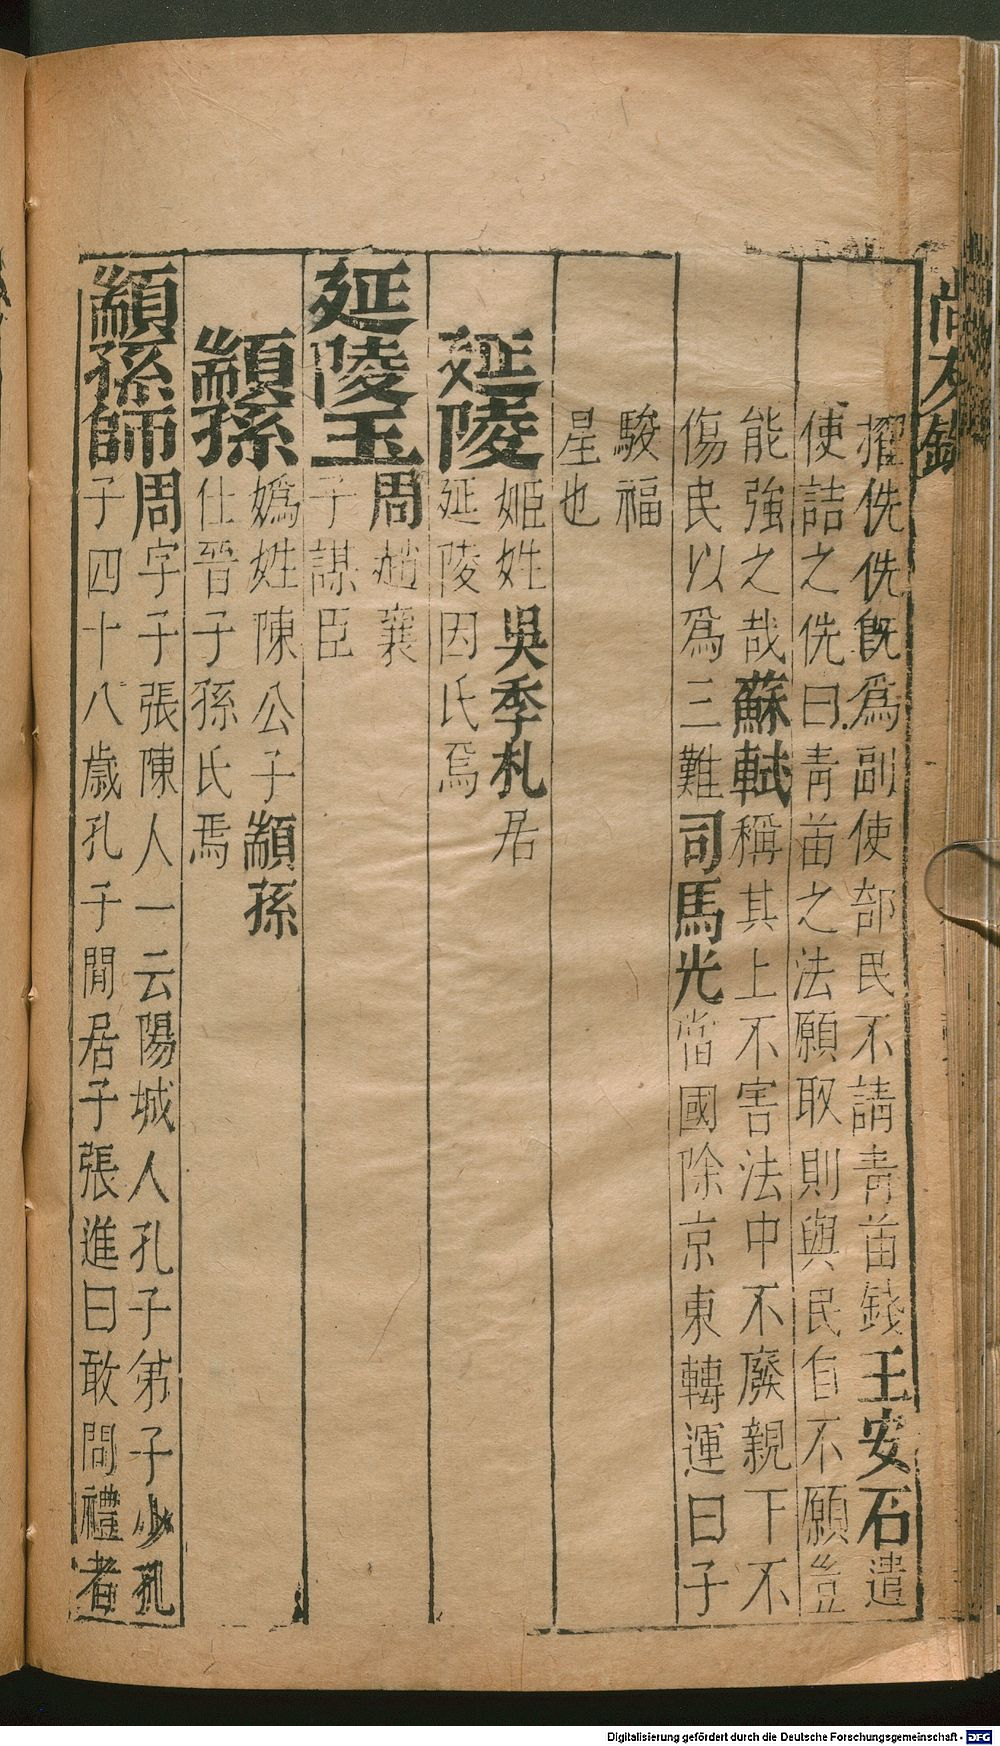 尚友錄
擢侁侁旣爲副使部民不請靑苗錢王安石遣
使詰之侁曰靑苗之法願取則與民自不願豈
能強之哉蘇軾稱其上不害法中不廢親下不
傷民以爲三難司馬光當國除京東轉運曰子
駿福
星也
延陵
姬姓吳季札居
延陵因氏焉
延陵玉
周趙襄
子謀臣
顓孫
嬀姓陳公子顓孫
仕晉子孫氏焉
顓孫師
周字子張陳人一云陽城人孔子弟子少孔
子四十八歲孔子閒居子張進曰敢問禮者
Digitalisierung gefördert durch die Deutsche Forschungsgemeinschaft - DFG